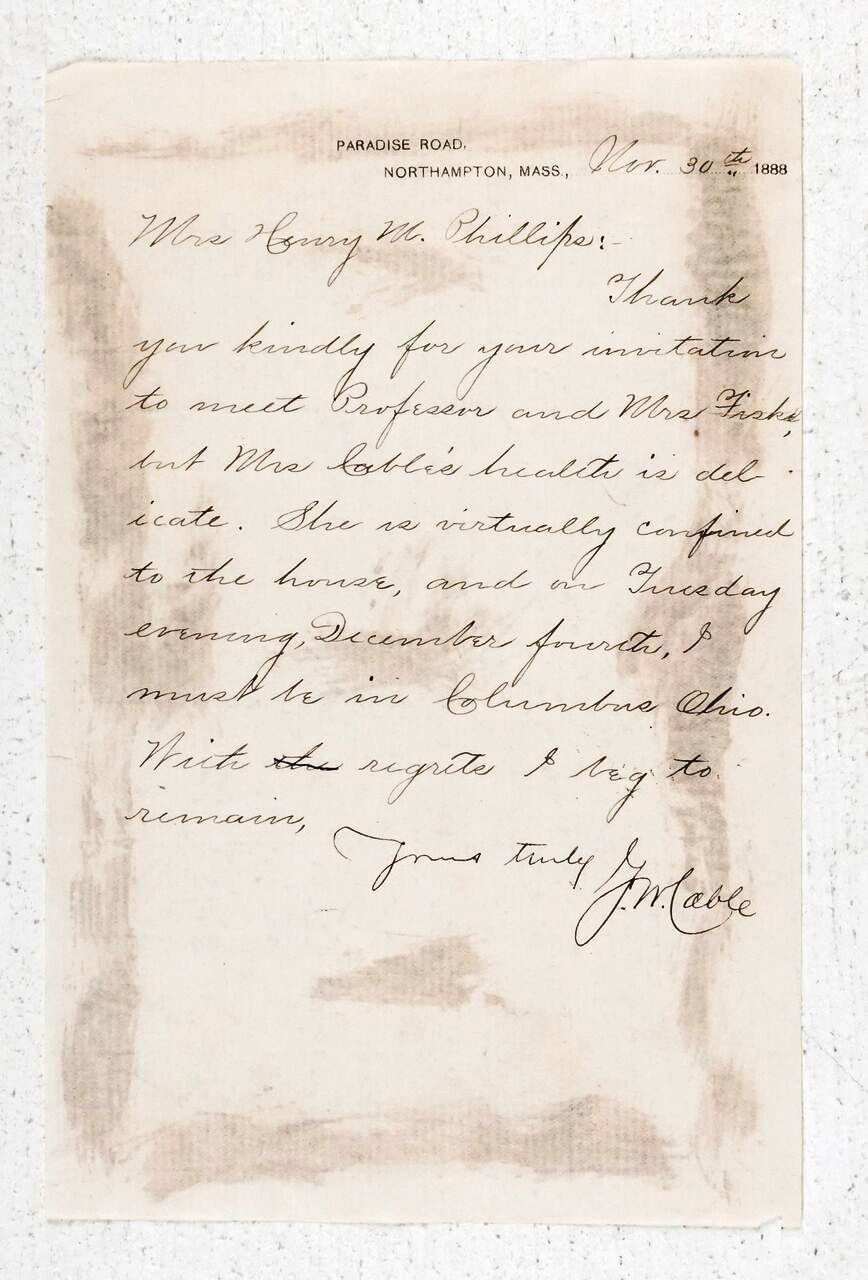 PARADISE ROAD,
NORTHAMPTON, MASS., Nov. 30th 1888
Mrs Henry M. Phillips:-
Thank
you kindly for your invitation
to meet Professor and Mrs Fiske,
but Mrs Cable's health is del-
icate. She is virtually confined
to the house, and on Tuesday
evening, December fourth, I
must be in Columbus Ohio.
With the regrets I beg to
remain,
Yours truly
G.W. Cable